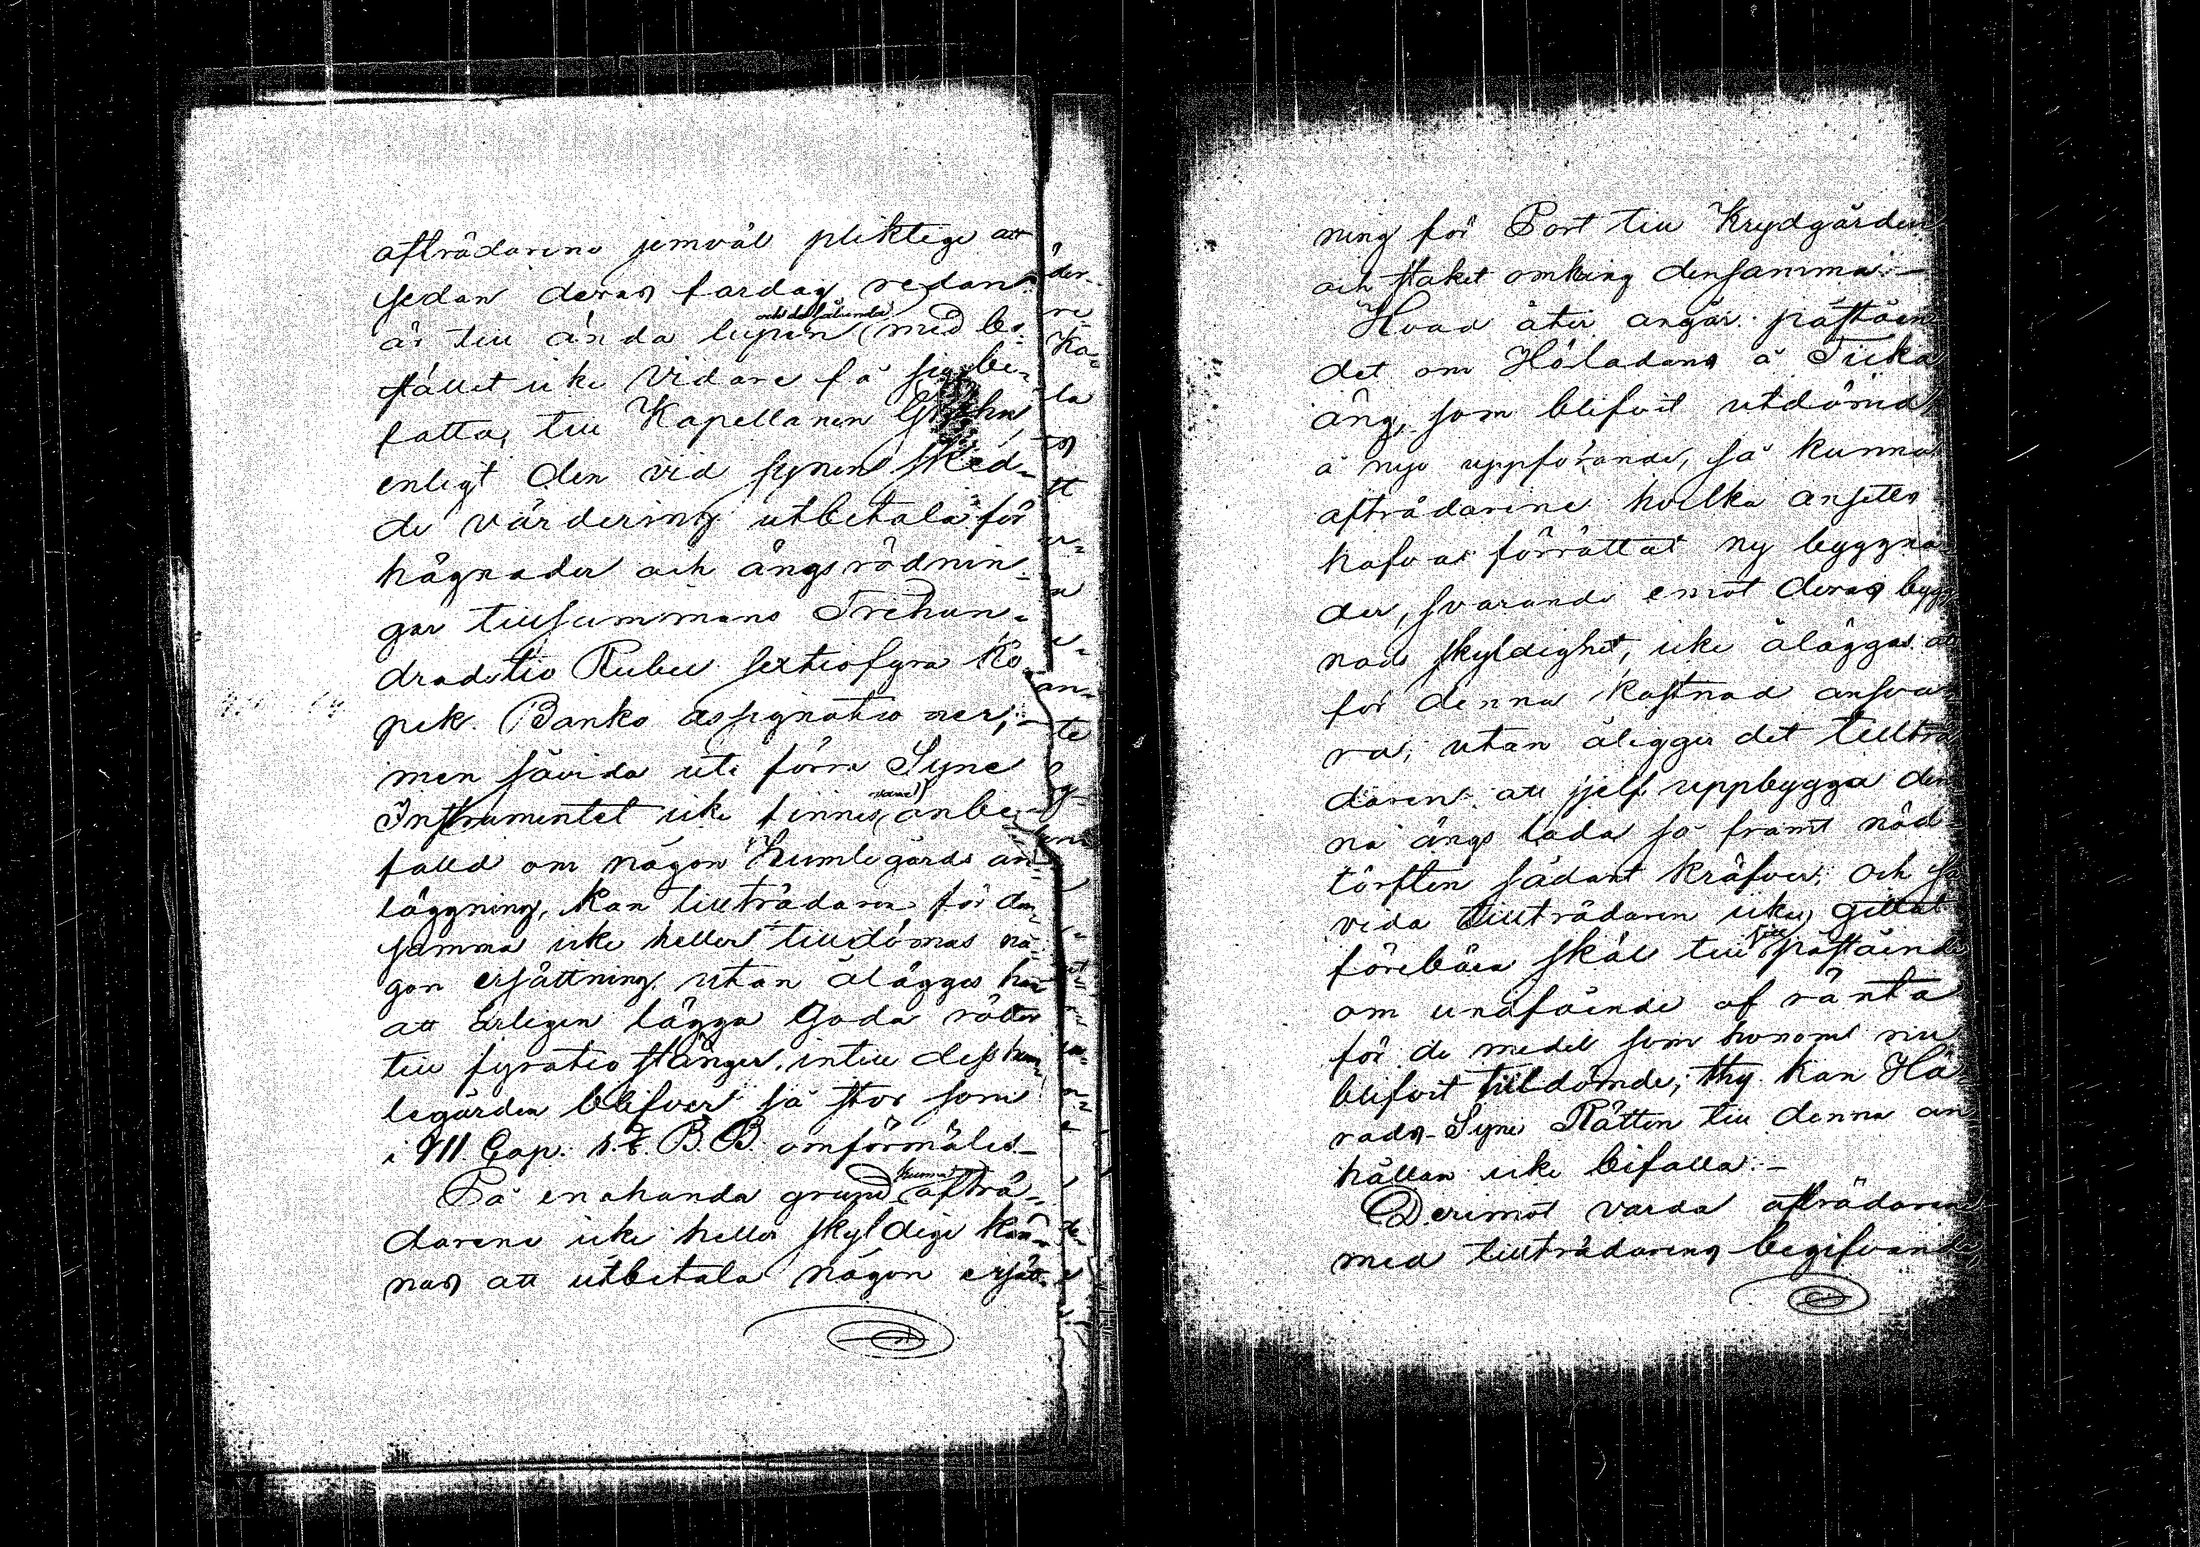 afträdarene jemväl pliktige att
sedan deras fardag redan
är till ända lupen (och de således) med bo¬
stället icke vidare få sig be¬
fatta, till Kapellanen
enligt den vid synen sked¬
de värdering utbetala för
hägnader och ängsrödnin¬
gar tillsammans Trehun¬
dradetio Rubel sextiofyra Ko¬
pek. Banko assignationer,
men såvida uti förra Syne
Instrumentet icke finnes anbe¬
falld om någon Humlegårds an¬
läggning, kan tillträdaren för den¬
samma icke heller tilldömas nå¬
gon ersättning, utan åläggas
att årligen lägga Goda rötter
till fyratio stänger, intill dess hum¬
legården blifver så stor som
i VII. Cap. 1. §. B.B. omförmäles.
På enahanda grund kunna afträ¬
darene icke heller skyldige kän¬
nas att utbetala någon ersätt¬
ning för Port till Krydgården
och staket omkring densamma.
Hvad åter angår påståen¬
det om Höladans å Tuka
äng, som blifvit utdömd
å nyo uppförande, så kunna
afträdarene hvilka ansetts
hafva förrättat ny byggna¬
der, svarande emot deras bygg¬
nads skyldighet, icke åläggas att
för denna kostnad ansva¬
ra, utan åligger det tillträ¬
daren att sjelf uppbygga den¬
na ängs lada så framt nöd¬
törften sådant kräfver, och så
vida tillträdaren icke gittat
förebära skäl till sitt påstående
om undfående af ränta
för de medel som honom nu
blifvit tilldömde, thy kan Hä¬
rads-Syne Rätten till denna an¬
hållan icke bifalla.
Deremot varda afträdarene
med tillträdarens begifvande,